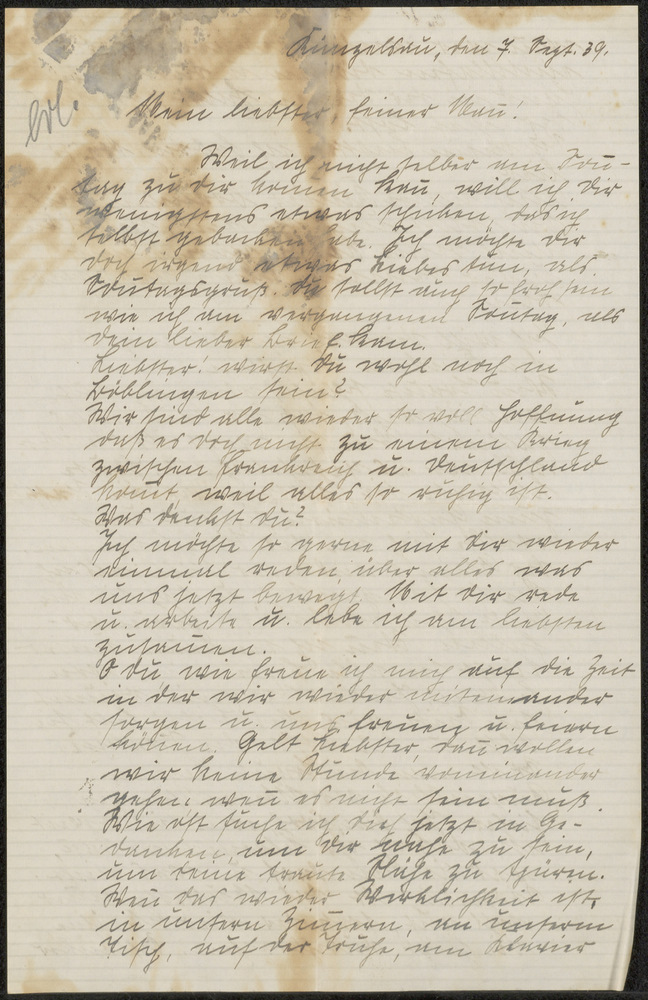 Künzelsau, den 7. Sept. 39.
erl.
Mein liebster, feiner Mañ!
Weil ich nicht selber am Soñ-
tag zu dir kom̄en kañ, will ich dir
wenigstens etwas schicken, das ich
selbst gebacken habe. Ich möchte dir
doch irgend etwas Liebes tun, als
Soñtagsgruß. Du sollst auch so froh sein
wie ich am vergangenen Soñtag, als
dein lieber Brief kam.
Liebster! wirst du wohl noch in
Böblingen sein?
Wir sind alle wieder so voll Hoffnung
daß es doch nicht zu einem Krieg
zwischen Frankreich u. Deutschland
kom̄t, weil alles so ruhig ist.
Was denkst du?
Ich möchte so gerne mit dir wieder
einmal reden über alles was
uns jetzt bewegt. Mit dir rede
u. arbeite u. lebe ich am liebsten
zusam̄en.
O du, wie freue ich mich auf die Zeit
in der wir wieder miteinander
sorgen u. uns freuen u. feiern
köñen. Gelt Liebster, dañ wollen
wir keine Stunde voneinander
gehen, weñ es nicht sein muß.
Wie oft suche ich dich jetzt in Ge-
danken, um dir nahe zu sein,
um deine traute Nähe zu spüren.
Weñ das wieder Wirklichkeit ist,
in unsern Zim̄ern, an unserm
Tisch, auf der Truhe, am Klavier